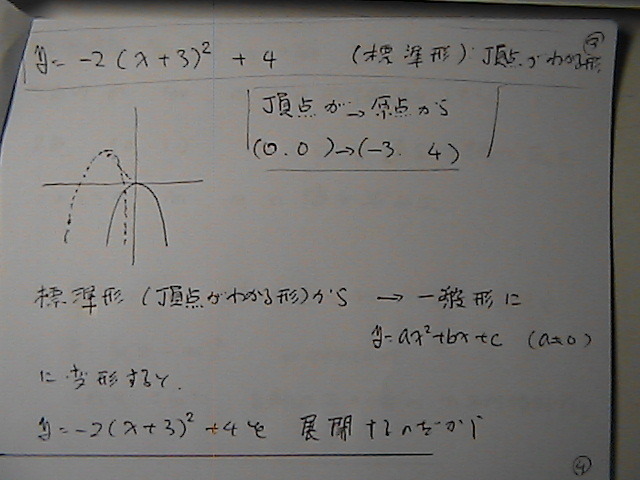 y = -2(x+3)² + 4 (標準形) 頂点がわかる形 ③
頂点が→原点から
(0.0)→(-3. 4)
標準形(頂点がわかる形)から → 一般形に
y=ax²+bx+c (a≠0)
に変形すると.
y=-2(x+3)²+4を 展開するのだから
④